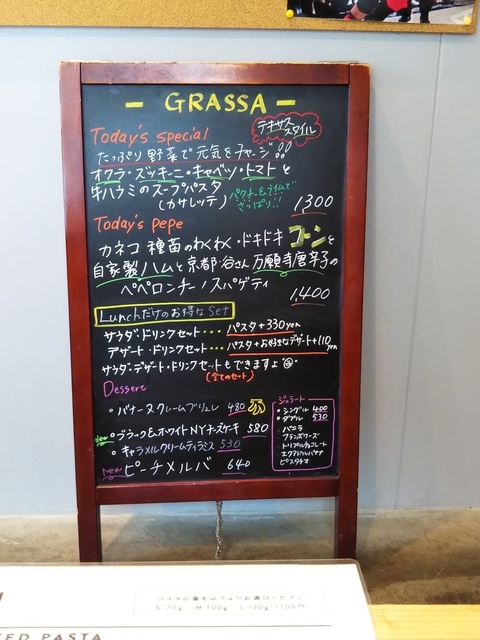 - GRASSA -
Today's special
テキサススタイル
たっぷり野菜で元気をチャージ!!
オクラ・ズッキーニ・キャベツ・トマトと
牛ハラミのスープパスタ
(カサレッテ)
パクチー&ライムで
さっぱり!!
1,300
Today's pepe
カネコ種苗のわくわく・ドキドキコーンと
自家製ハムと京都・谷さん万願寺唐辛子の
ペペロンチーノスパゲティ
1,400
Lunchだけのお得なset
サラダ・ドリンクセット・・・パスタ+330yen
デザート・ドリンクセット・・・パスタ+お好きなデザート+110yen
サラダ・デザート・ドリンクセットもできますよ
(全てのセット)
Dessert
・バナーヌクレームブリュレ 480
new・ブラック&ホワイトNYチーズケーキ 580
・キャラメルクリームティラミス 530
New ピーチメルバ 640
ジェラート
・シングル 400
・ダブル 530
バニラ
フランボワーズ
トリプルチョコレート
エクアドルバナナ
ピスタチオ
パスタの量を以下よりお選びください
S:70g M:100g L:130g(+100円)
PASTA